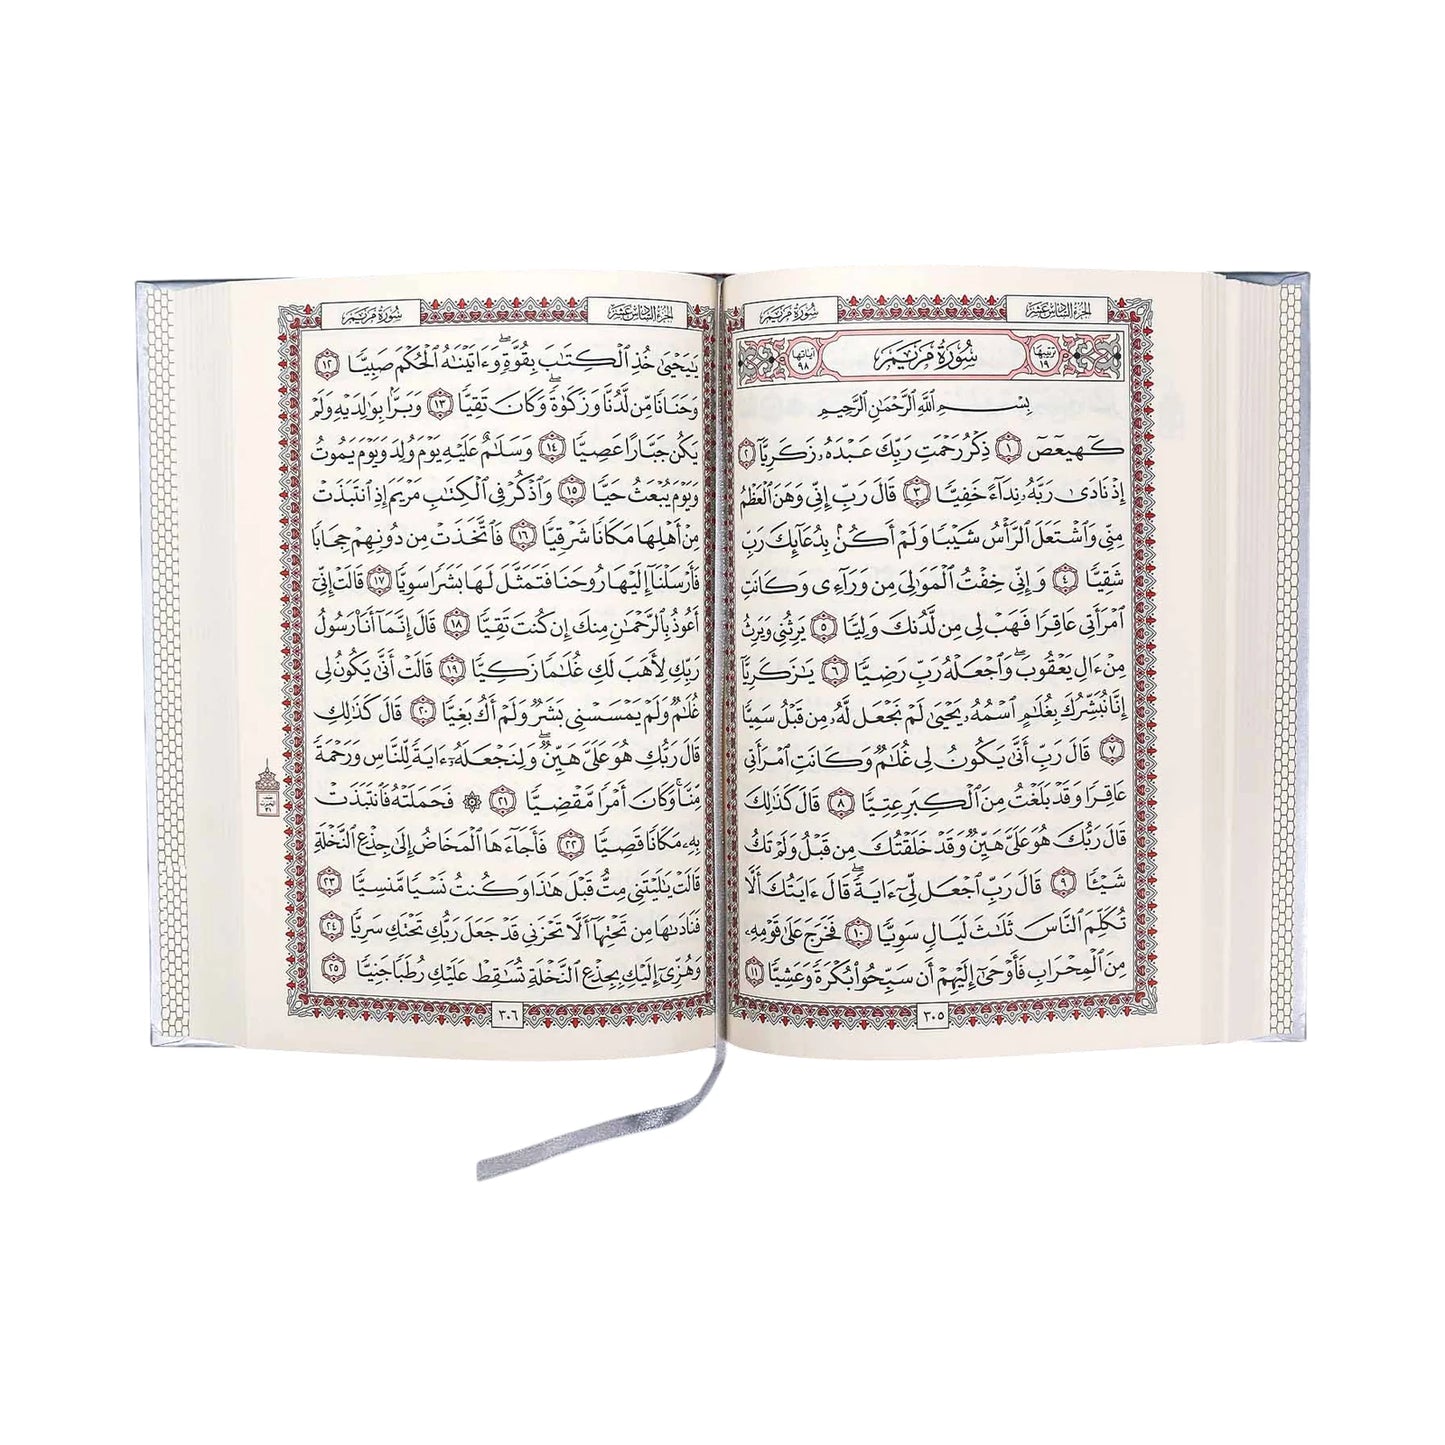 سُورَةُ مَرْيَمَ
الجُزْءُ السَّادِسَ عَشَرَ
ترتيبها ١٩
سُورَةُ مَرْيَمَ
آياتها ٩٨
بِسْمِ ٱللَّهِ ٱلرَّحْمَٰنِ ٱلرَّحِيمِ
كٓهيعٓصٓ ١ ذِكْرُ رَحْمَتِ رَبِّكَ عَبْدَهُۥ زَكَرِيَّآ ٢
إِذْ نَادَىٰ رَبَّهُۥ نِدَآءً خَفِيًّا ٣ قَالَ رَبِّ إِنِّي وَهَنَ ٱلْعَظْمُ
مِنِّي وَٱشْتَعَلَ ٱلرَّأْسُ شَيْبًا وَلَمْ أَكُنۢ بِدُعَآئِكَ رَبِّ
شَقِيًّا ٤ وَإِنِّي خِفْتُ ٱلْمَوَٰلِيَ مِن وَرَآءِي وَكَانَتِ
ٱمْرَأَتِي عَاقِرًا فَهَبْ لِي مِن لَّدُنكَ وَلِيًّا ٥ يَرِثُنِي وَيَرِثُ
مِنْ ءَالِ يَعْقُوبَۖ وَٱجْعَلْهُ رَبِّ رَضِيًّا ٦ يَٰزَكَرِيَّآ
إِنَّا نُبَشِّرُكَ بِغُلَٰمٍ ٱسْمُهُۥ يَحْيَىٰ لَمْ نَجْعَل لَّهُۥ مِن قَبْلُ سَمِيًّا
٧ قَالَ رَبِّ أَنَّىٰ يَكُونُ لِي غُلَٰمٌ وَكَانَتِ ٱمْرَأَتِي
عَاقِرًا وَقَدْ بَلَغْتُ مِنَ ٱلْكِبَرِ عِتِيًّا ٨ قَالَ كَذَٰلِكَ
قَالَ رَبُّكَ هُوَ عَلَيَّ هَيِّنٌ وَقَدْ خَلَقْتُكَ مِن قَبْلُ وَلَمْ تَكُ
شَيْـًٔا ٩ قَالَ رَبِّ ٱجْعَل لِّيٓ ءَايَةًۖ قَالَ ءَايَتُكَ أَلَّا
تُكَلِّمَ ٱلنَّاسَ ثَلَٰثَ لَيَالٍ سَوِيًّا ١٠ فَخَرَجَ عَلَىٰ قَوْمِهِۦ
مِنَ ٱلْمِحْرَابِ فَأَوْحَىٰٓ إِلَيْهِمْ أَن سَبِّحُوا۟ بُكْرَةً وَعَشِيًّا ١١
٣٠٥
سُورَةُ مَرْيَمَ
الجُزْءُ السَّادِسَ عَشَرَ
يَٰيَحْيَىٰ خُذِ ٱلْكِتَٰبَ بِقُوَّةٍۖ وَءَاتَيْنَٰهُ ٱلْحُكْمَ صَبِيًّا ١٢
وَحَنَانًا مِّن لَّدُنَّا وَزَكَوٰةًۖ وَكَانَ تَقِيًّا ١٣ وَبَرًّۢا بِوَٰلِدَيْهِ وَلَمْ
يَكُن جَبَّارًا عَصِيًّا ١٤ وَسَلَٰمٌ عَلَيْهِ يَوْمَ وُلِدَ وَيَوْمَ يَمُوتُ
وَيَوْمَ يُبْعَثُ حَيًّا ١٥ وَٱذْكُرْ فِي ٱلْكِتَٰبِ مَرْيَمَ إِذِ ٱنتَبَذَتْ
مِنْ أَهْلِهَا مَكَانًا شَرْقِيًّا ١٦ فَٱتَّخَذَتْ مِن دُونِهِمْ حِجَابًا
فَأَرْسَلْنَآ إِلَيْهَا رُوحَنَا فَتَمَثَّلَ لَهَا بَشَرًا سَوِيًّا ١٧ قَالَتْ إِنِّيٓ
أَعُوذُ بِٱلرَّحْمَٰنِ مِنكَ إِن كُنتَ تَقِيًّا ١٨ قَالَ إِنَّمَآ أَنَا۠ رَسُولُ
رَبِّكِ لِأَهَبَ لَكِ غُلَٰمًا زَكِيًّا ١٩ قَالَتْ أَنَّىٰ يَكُونُ لِي
غُلَٰمٌ وَلَمْ يَمْسَسْنِي بَشَرٌ وَلَمْ أَكُ بَغِيًّا ٢٠ قَالَ كَذَٰلِكِ
قَالَ رَبُّكِ هُوَ عَلَيَّ هَيِّنٌۖ وَلِنَجْعَلَهُۥٓ ءَايَةً لِّلنَّاسِ وَرَحْمَةً
مِّنَّاۚ وَكَانَ أَمْرًا مَّقْضِيًّا ٢١ ۞ فَحَمَلَتْهُ فَٱنتَبَذَتْ
بِهِۦ مَكَانًا قَصِيًّا ٢٢ فَأَجَآءَهَا ٱلْمَخَاضُ إِلَىٰ جِذْعِ ٱلنَّخْلَةِ
قَالَتْ يَٰلَيْتَنِي مِتُّ قَبْلَ هَٰذَا وَكُنتُ نَسْيًا مَّنسِيًّا ٢٣
فَنَادَىٰهَا مِن تَحْتِهَآ أَلَّا تَحْزَنِي قَدْ جَعَلَ رَبُّكِ تَحْتَكِ سَرِيًّا ٢٤
وَهُزِّيٓ إِلَيْكِ بِجِذْعِ ٱلنَّخْلَةِ تُسَٰقِطْ عَلَيْكِ رُطَبًا جَنِيًّا ٢٥
٣٠٦